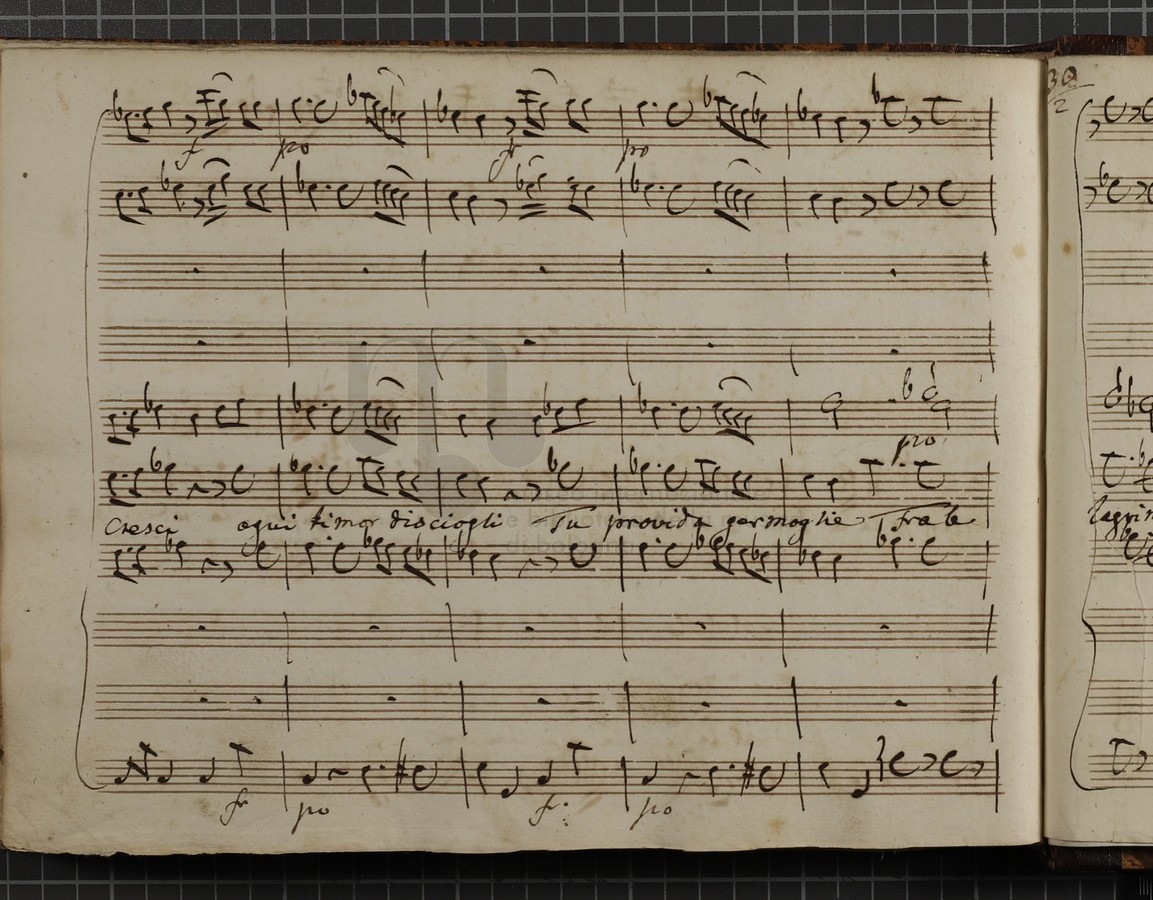 30
2
f po fr po
po
Cresci ogni timor disciogli Tu provida germoglie Fra le
fr po fr: po